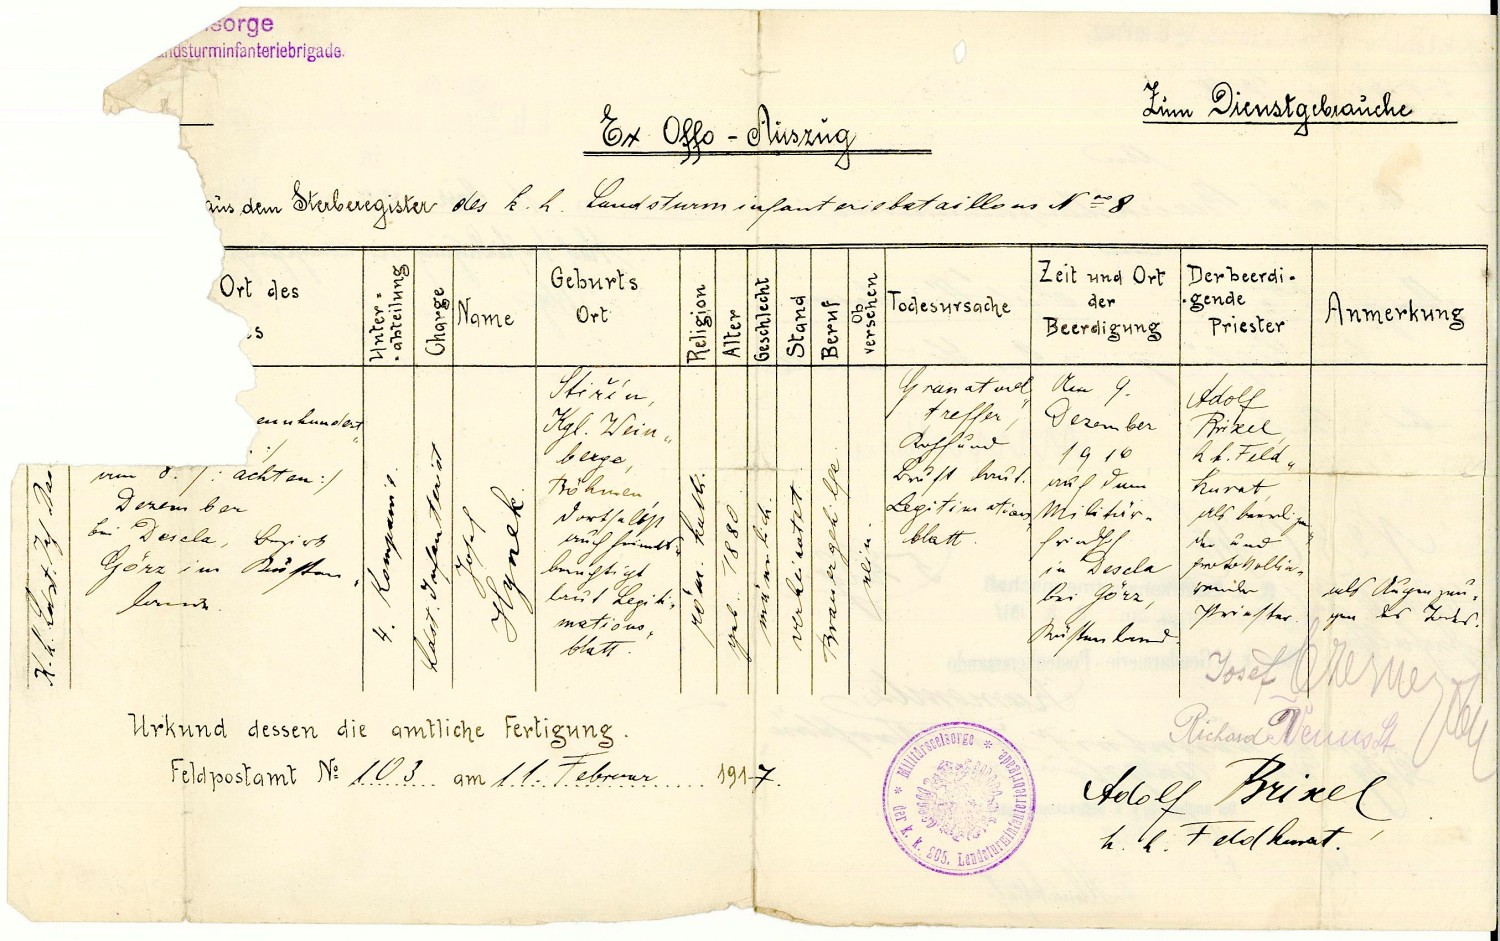 sorge
andsturminfanteriebrigade.
Zum Dienstgebrauche
Ex Offo - Auszug
aus dem Sterberegister des k. k. Landsturminfanteriebataillons No 8
Ort des
es
Unter=
=abteilung
Charge
Name
Geburts
Ort
Religion
Alter
Geschlecht
Stand
Beruf
Ob
versehen
Todesursache
Zeit und Ort
der
Beerdigung
Der beerdi-
-gende
Priester
Anmerkung
K. k. Ldst. Inf. Baa
eunhundert
am 8. /: achten :/
Dezember
bei Desela, Bezirk
Görz im Küsten„
lande.
4. Kompanie.
Ldst. Infanterist
Josef
Hynek
Stiřín,
Kgl. Wein„
berge,
Böhmen,
dortselbst
auch heimats-
berechtigt
laut Legiti-
mations„
blatt.
röm. kath.
geb. 1880
männlich
verheiratet
Brauergehilfe
nein.
Granatvoll„
treffer,
Kopf und
Brust laut
Legitimations
blatt.
Am 9.
Dezember
1916
auf dem
Militär-
friedh.
in Desela
bei Görz,
Küstenland.
Adolf
Brixel
k. k. Feld„
kurat,
als beerdigen„
der und
protokollie-
render
Priester.
als Augenzeu-
gen des Todes.
Josef
Richard
Urkund dessen die amtliche Fertigung.
Feldpostamt No 103 am 11. Februar 1917.
* Militärseelsorge * der k. k. 205. Landsturminfanteriebrigade.
Adolf Brixel
k. k. Feldkurat.